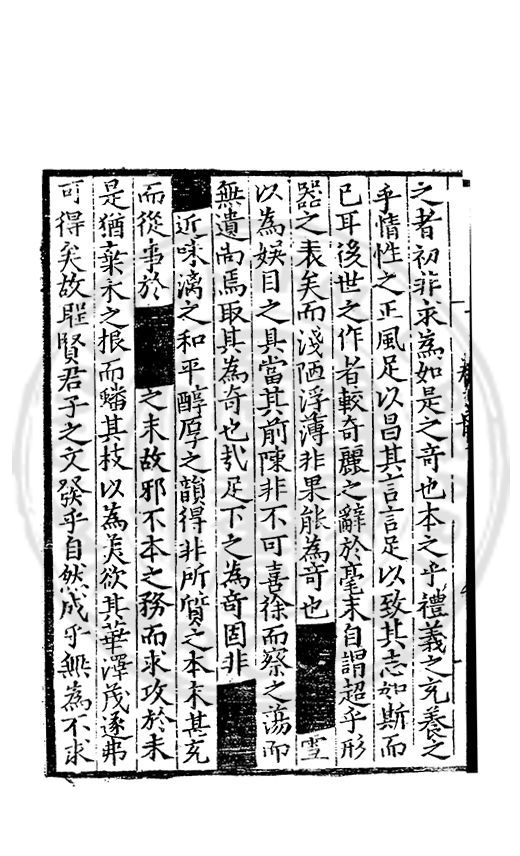 之者初非求為如是之奇也本之乎禮義之充養之
乎情性之正風足以昌其言言足以致其志如斯而
已耳後世之作者較奇麗之辭於毫末自謂超乎形
器之表矣而淺陋浮薄非果能為奇也 雪
以為娛目之具當其前陳非不可喜徐而察之蕩而
無遺尚焉取其為奇也㢤足下之為奇固非
近味漓之和平醇厚之韻得非所質之本末甚充
而從事於 之末故邪不本之務而求攻於末
是猶棄木之根而蟠其枝以為美欲其華澤茂遂弗
可得矣故聖賢君子之文發乎自然成乎無為不求